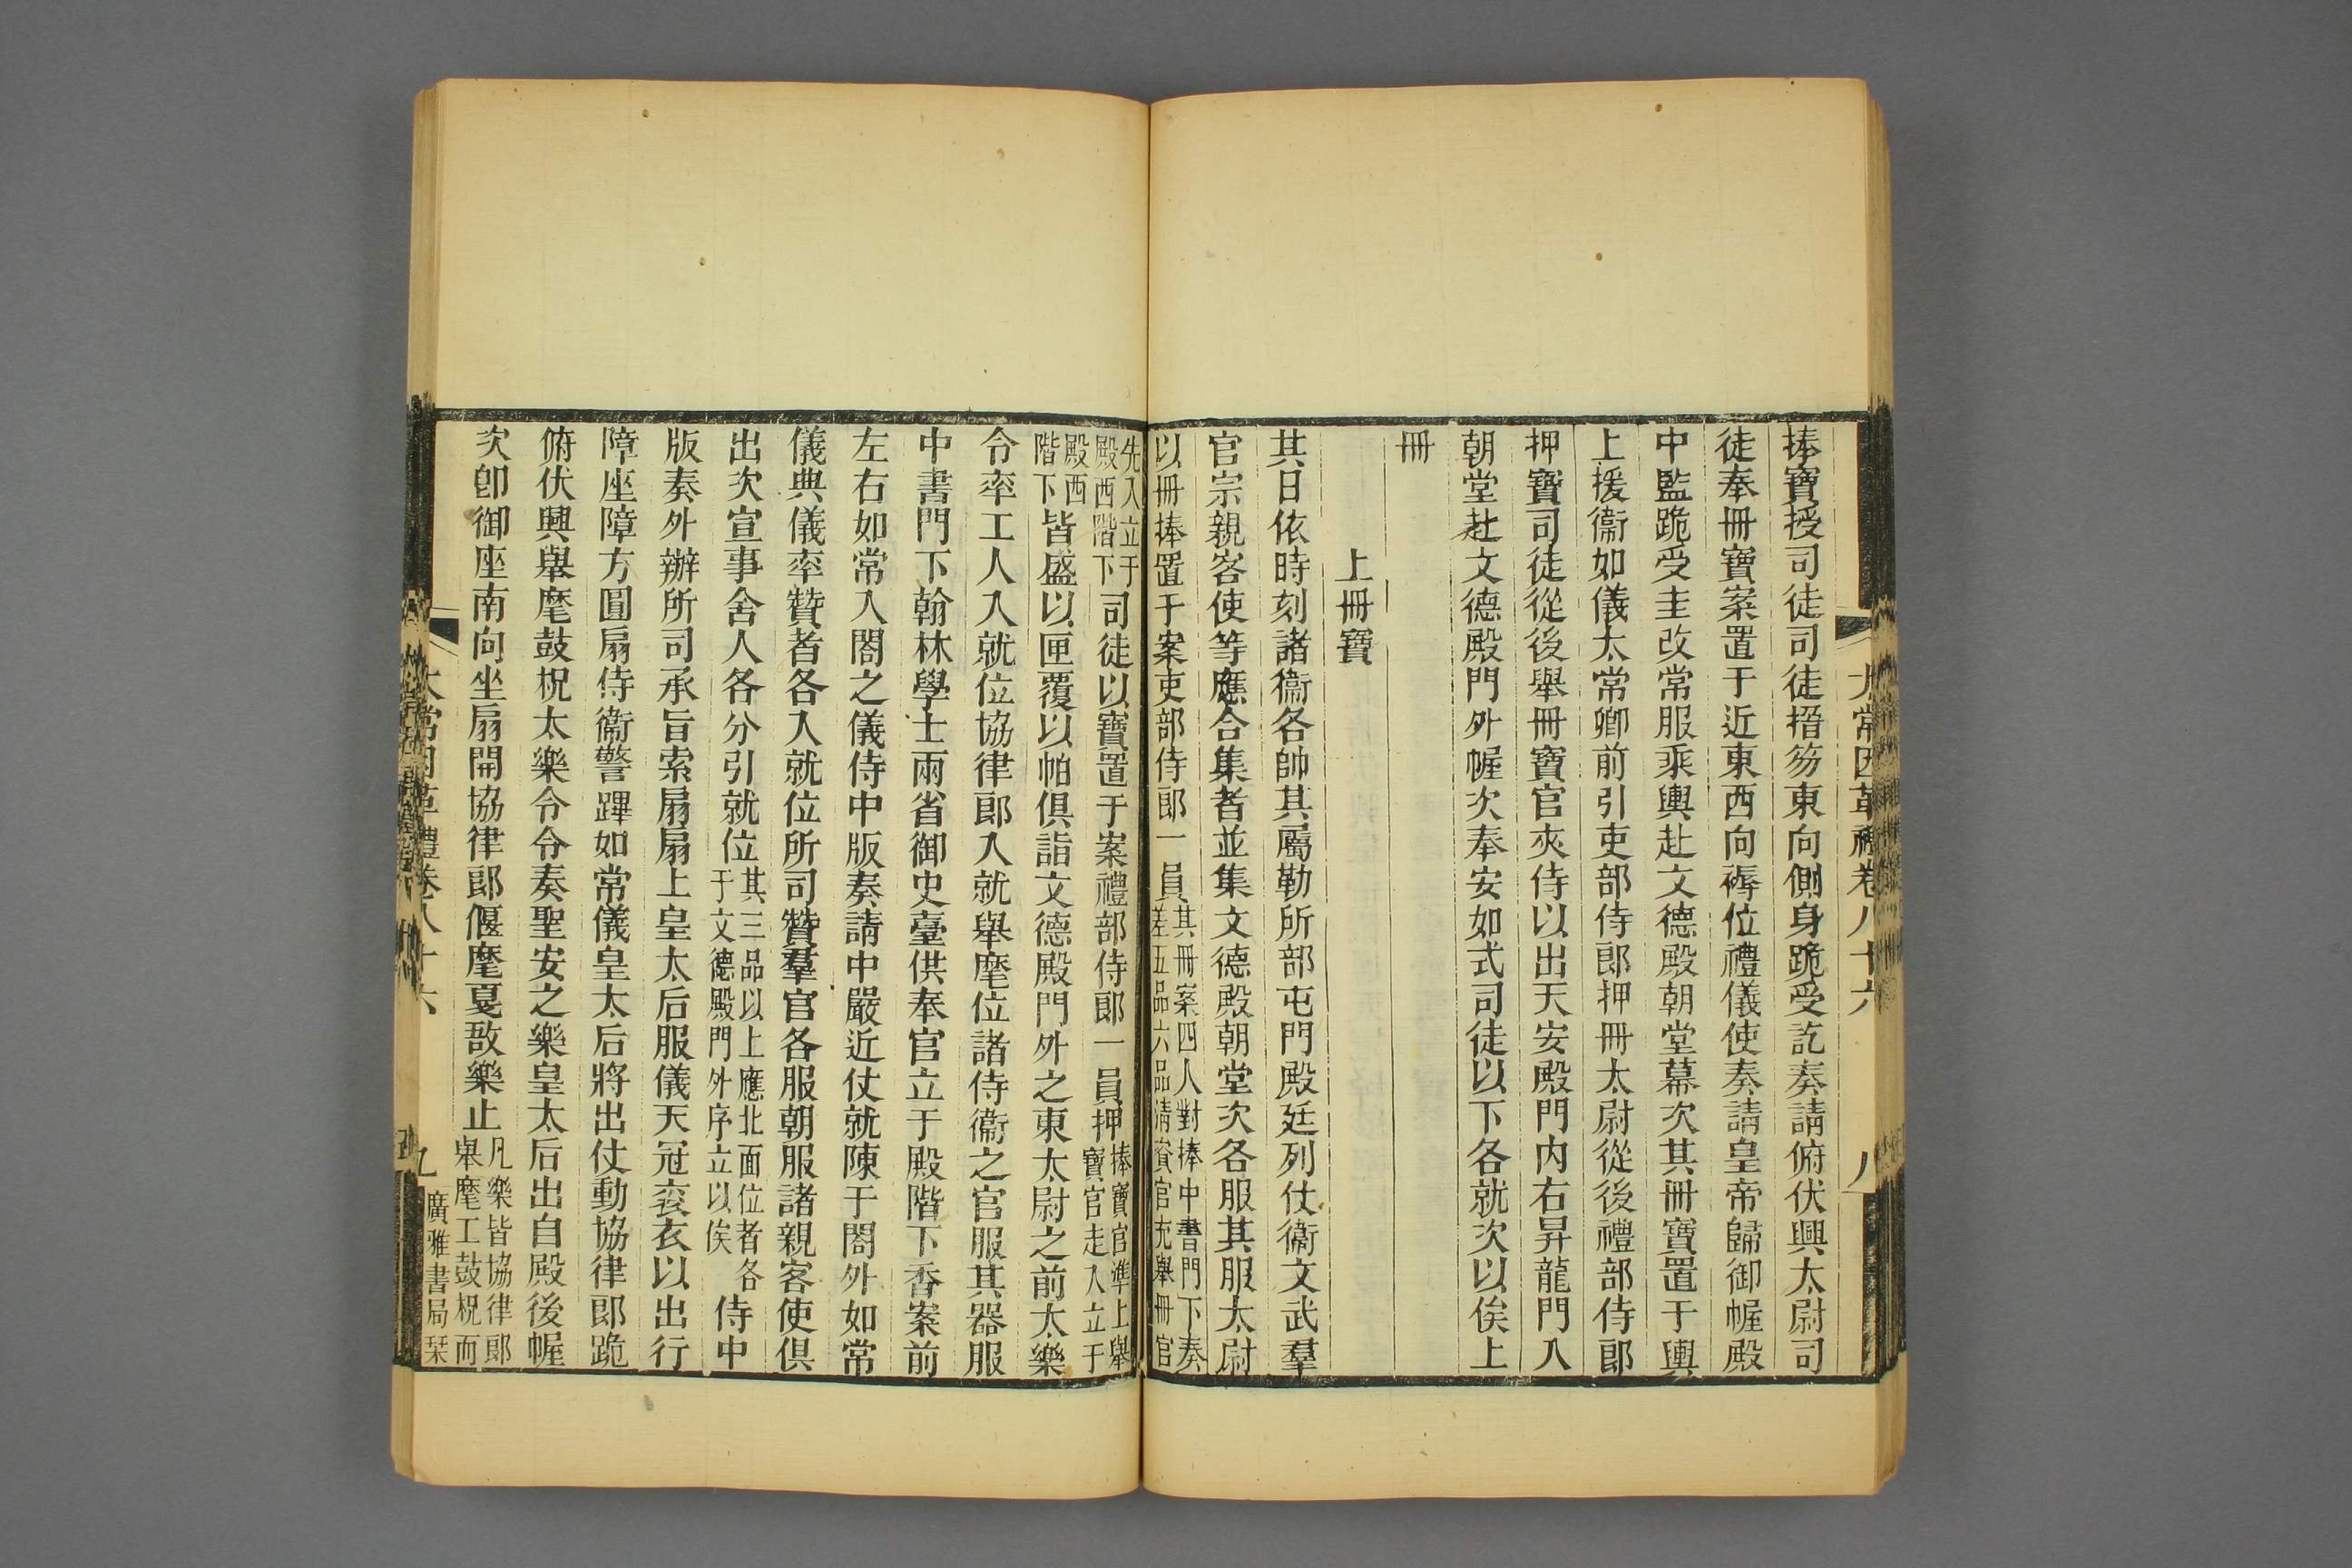 捧寶授司徒司徒搢笏東向側身跪受訖奏請俯伏興太尉司
徒奉冊寶案置于近東西向褥位禮儀使奏請皇帝歸御幄殿
中監跪受圭改常服乘輿赴文德殿朝堂幕次其冊寶置于輿
上援衞如儀太常卿前引吏部侍郎押冊太尉從後禮部侍郎
押寶司徒從後舉冊寶官夾侍以出天安殿門內右昇龍門入
朝堂赴文德殿門外幄次奉安如式司徒以下各就次以俟上
冊
上冊寶
其日依時刻諸衞各帥其屬勒所部屯門殿廷列仗衞文武羣
官宗親客使等應合集者並集文德殿朝堂次各服其服太尉
以冊捧置于案吏部侍郎一員其冊案四人對捧中書門下奏差五品六品清資官充舉冊官
先入立于殿西階下司徒以寶置于案禮部侍郎一員押捧寶官準上舉寶官走入立于
殿西階下皆盛以匣覆以帕俱詣文德殿門外之東太尉之前太樂
令率工人入就位協律郎入就舉麾位諸侍衞之官服其器服
中書門下翰林學士兩省御史臺供奉官立于殿階下香案前
左右如常入閤之儀侍中版奏請中嚴近仗就陳于閤外如常
儀典儀率贊者各入就位所司贊羣官各服朝服諸親客使俱
出次宣事舍人各分引就位其三品以上應北面位者各于文德殿門外序立以俟侍中
版奏外辦所司承旨索扇扇上皇太后服儀天冠袞衣以出行
障座障方圓扇侍衞警蹕如常儀皇太后將出仗動協律郎跪
俯伏興舉麾鼓柷太樂令令奏聖安之樂皇太后出自殿後幄
次卽御座南向坐扇開協律郎偃麾戛敔樂止凡樂皆協律郎舉麾工鼓柷而
太常因革禮卷八十六
八
太常因革禮卷八十六
九
廣雅書局栞